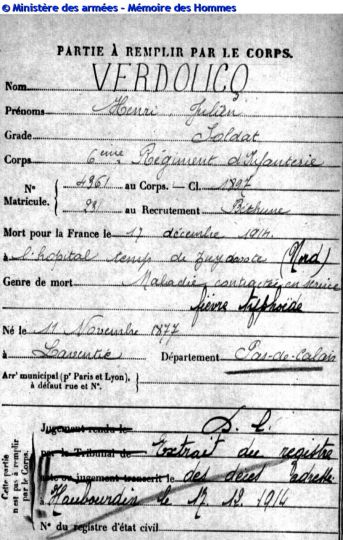 © Ministère des armées - Mémoire des Hommes
PARTIE À REMPLIR PAR LE CORPS.
Nom VERDOLICQ
Prénoms Henri, Julien
Grade Soldat
Corps 6ème Régiment d'Infanterie
N° 4961 au Corps. — Cl. 1897
Matricule. 931 au Recrutement Béthune
Mort pour la France le 17 décembre 1914
à l'hopital temp de Zuydcoote (Nord)
Genre de mort Maladie contractée en service
fièvre typhoïde
Né le 11 Novembre 1877
à Laventie Département Pas-de-Calais
Arrt municipal (pr Paris et Lyon),
à défaut rue et N°.
Cette partie n'est pas à remplir par le Corps.
Jugement rendu le D. C.
par le Tribunal de Extrait du registre
acte ou jugement transcrit le des décès
Haubourdin le 17.12.1914
N° du registre d'état civil